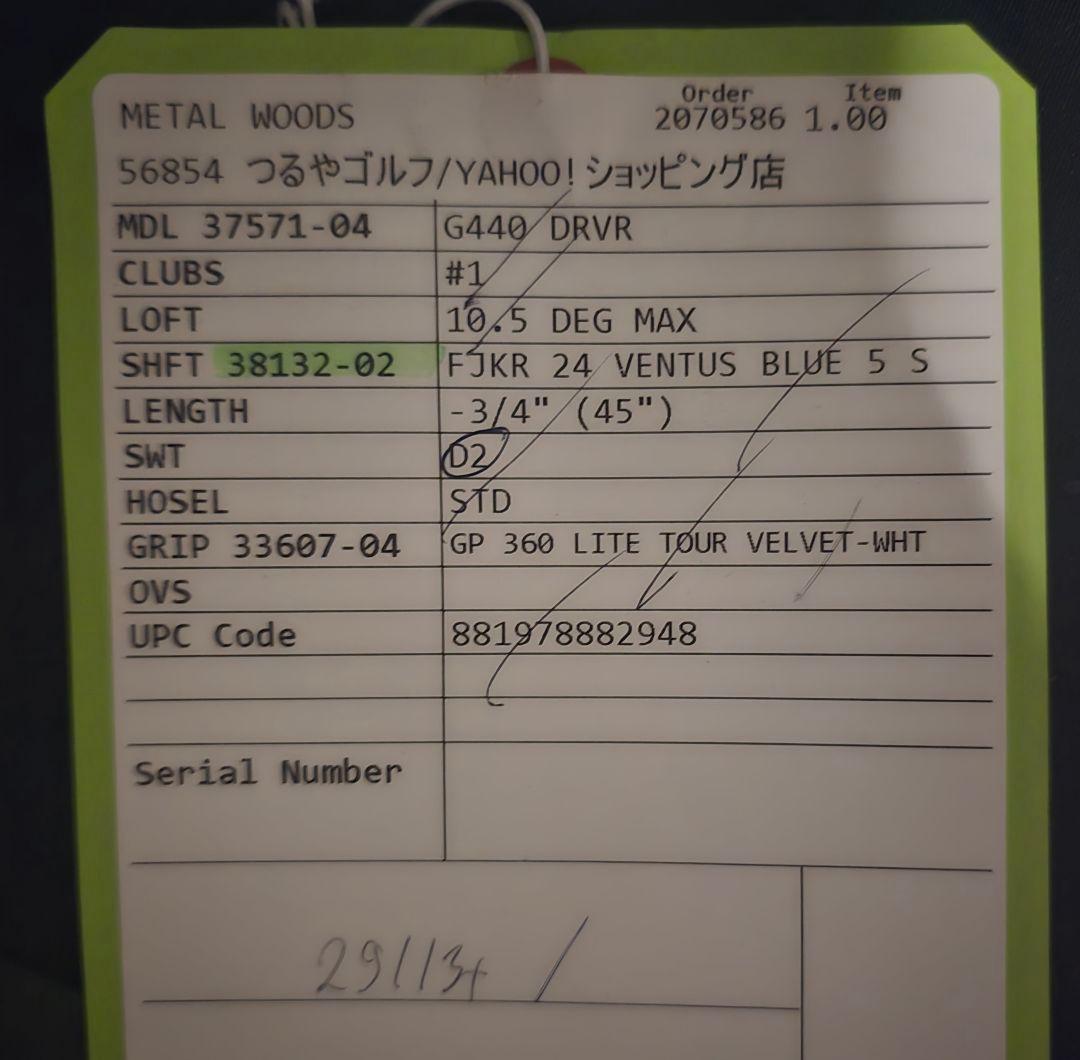 Order Item
METAL WOODS 2070586 1.00
56854 つるやゴルフ/YAHOO!ショッピング店
MDL 37571-04 G440 DRVR
CLUBS #1
LOFT 10.5 DEG MAX
SHFT 38132-02 FJKR 24 VENTUS BLUE 5 S
LENGTH -3/4" (45")
SWT D2
HOSEL STD
GRIP 33607-04 GP 360 LITE TOUR VELVET-WHT
OVS
UPC Code 881978882948
Serial Number